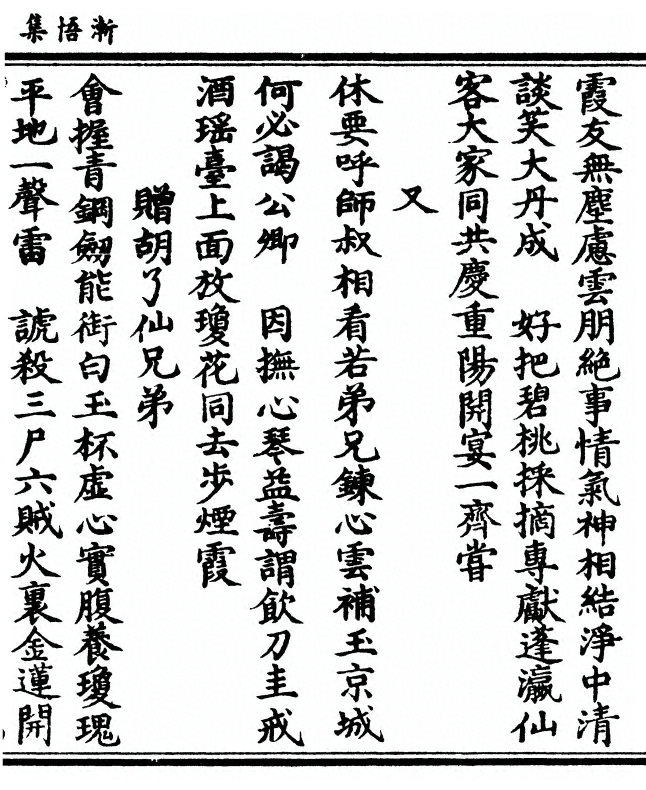 漸悟集
霞友無塵慮雲朋絶事情氣神相結淨中清
談笑大丹成　好把碧桃採摘專獻蓬瀛仙
客大家同共慶重陽開宴一齊甞
又
休要呼師叔相看若弟兄鍊心雲補玉京城
何必謁公卿　因撫心琴益壽謂飲刀圭戒
酒瑶臺上面放瓊花同去步煙霞
贈胡了仙兄弟
會握青鋼劔能衘白玉杯虛心實腹養瓊瑰
平地一聲雷　諕殺三尸六賊火裏金蓮開